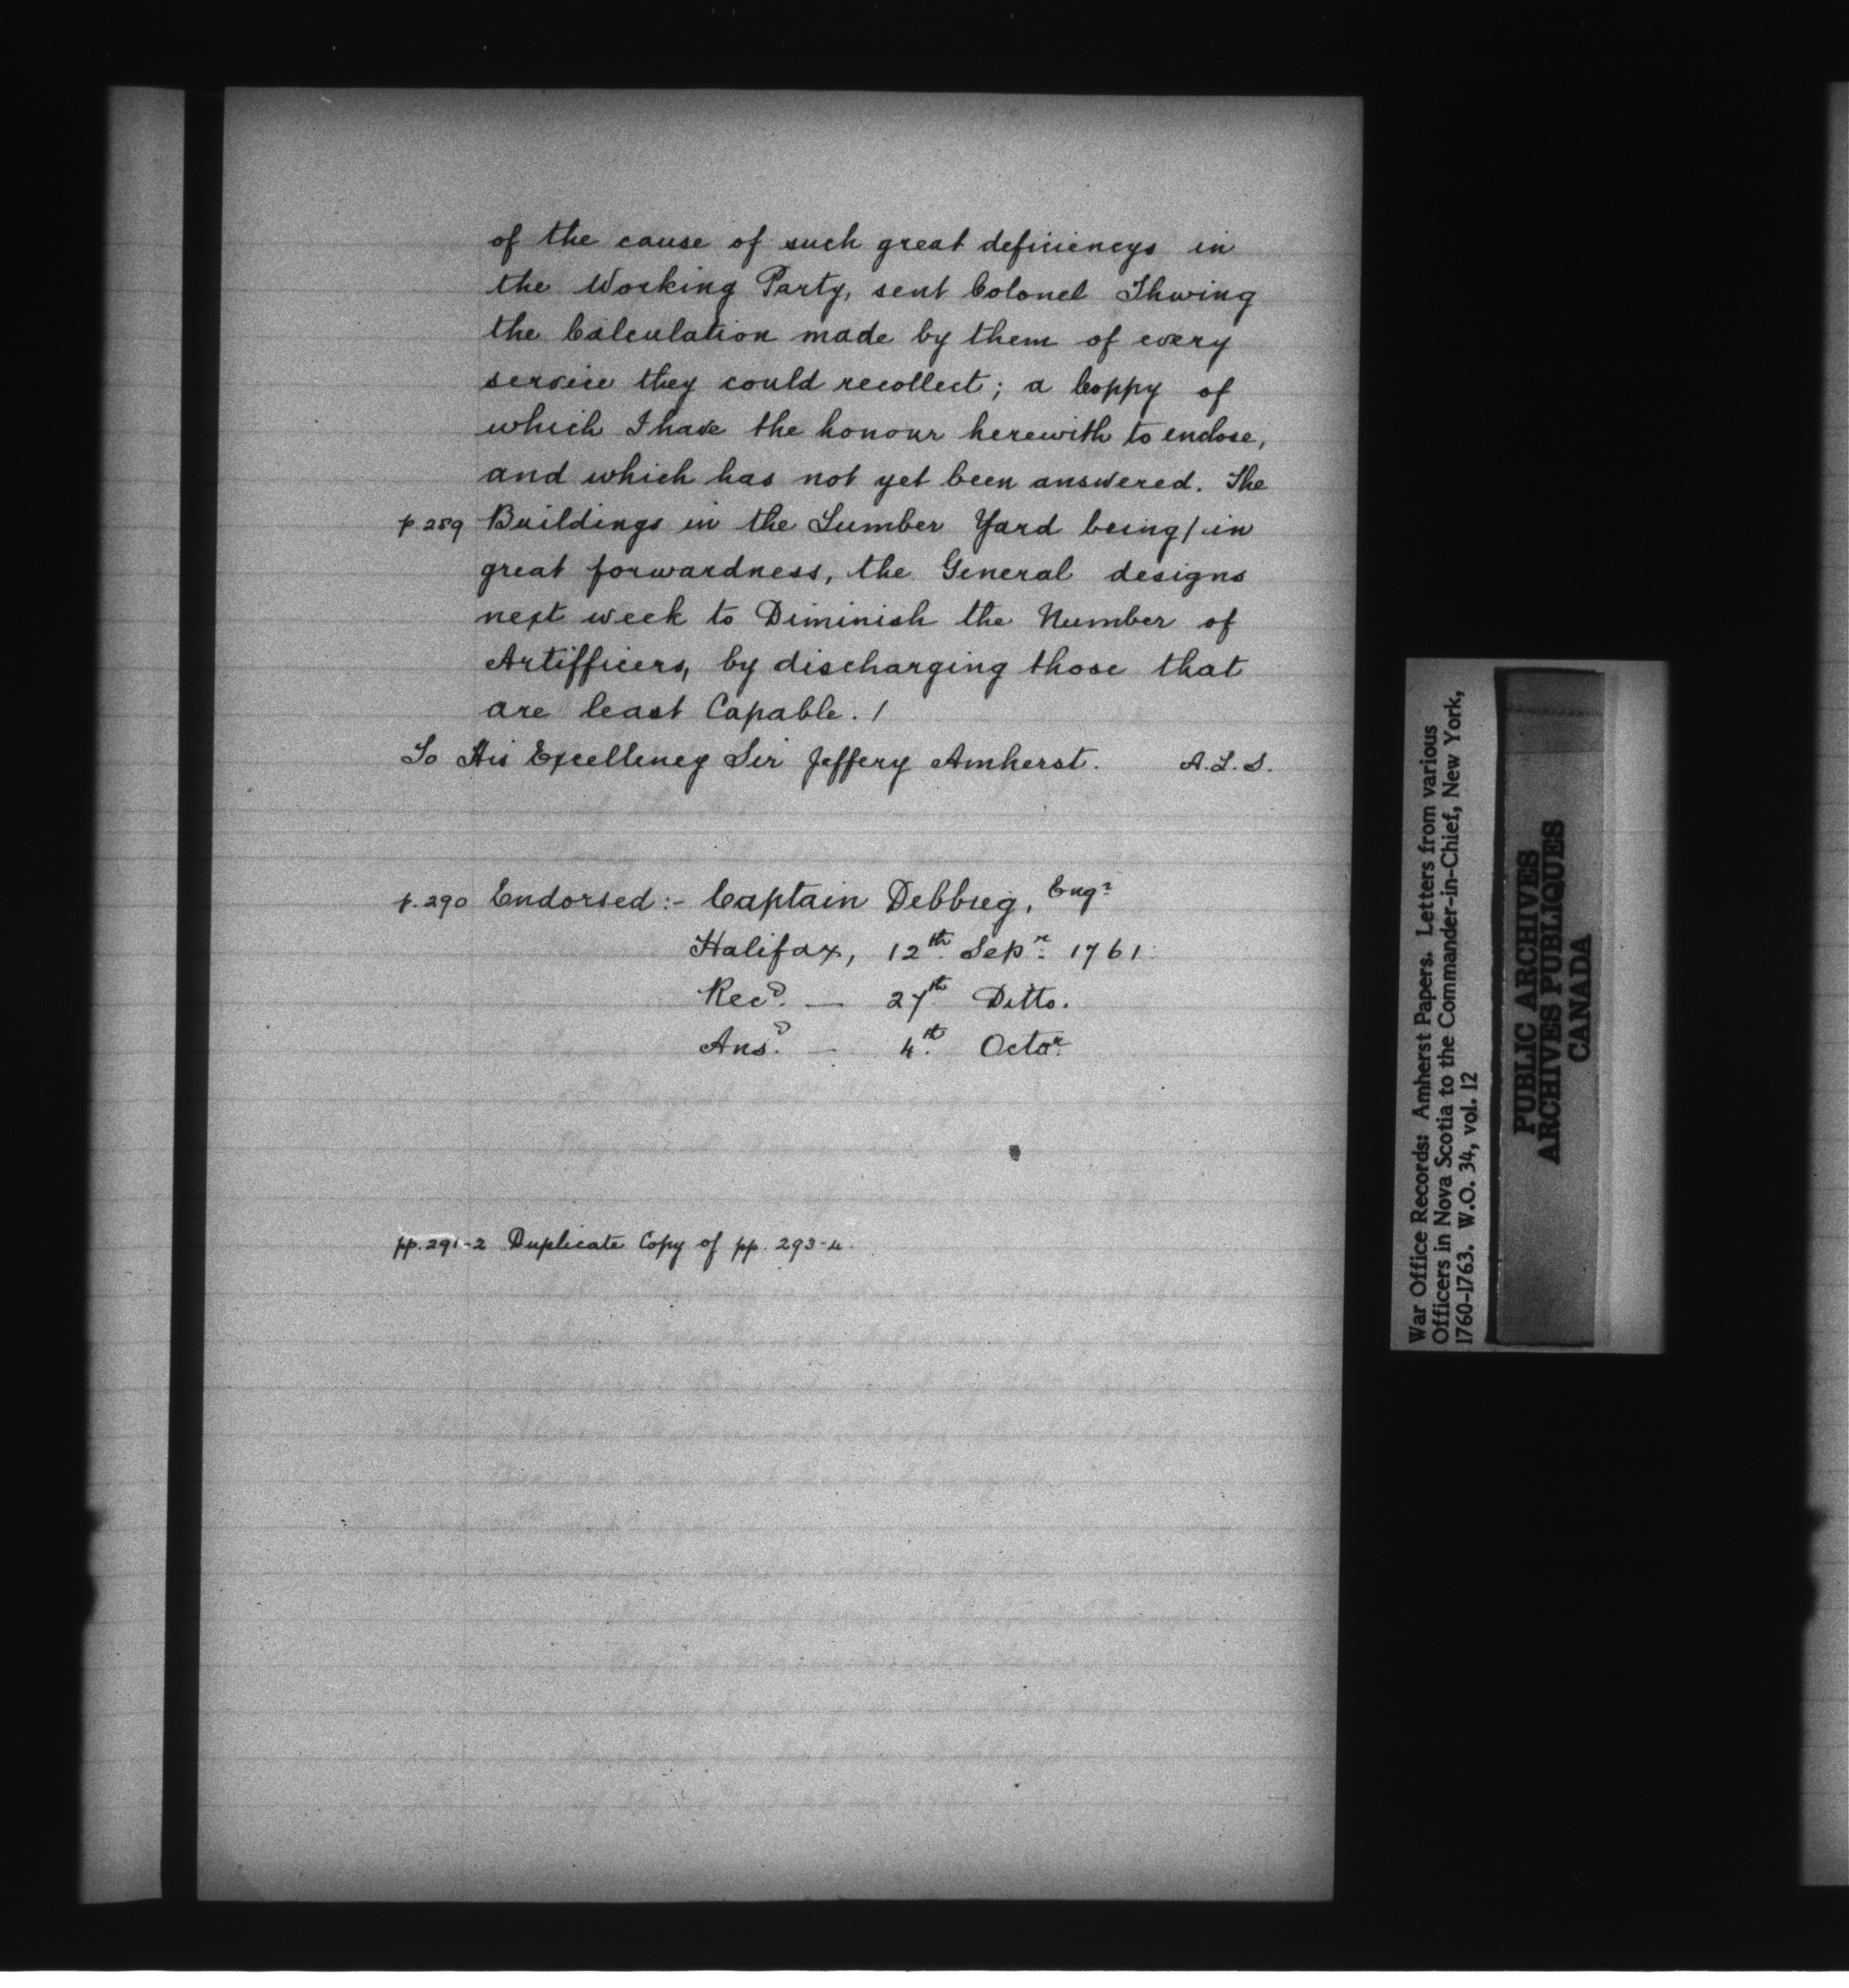 of the cause of such great deficiencys in
the Working Party, sent Colonel Thwing
the Calculation made by them of every
service they could recollect; a Coppy of
which I have the honour herewith to enclose,
and which has not yet been answered. The
p 289 Buildings in the Lumber Yard being / in
great forwardness, the General designs
next week to Diminish the Number of
Artifficers, by discharging those that
are least Capable. /
To His Excellency Sir Jeffery Amherst. A.L.S.
p. 290 Endorsed :- Captain Debbieg, Engr
Halifax, 12th Sepr 1761.
Recd. — 27th Ditto.
Ansd. — 4th Octor
pp. 291-2 Duplicate Copy of pp. 293-4.
War Office Records: Amherst Papers. Letters from various
Officers in Nova Scotia to the Commander-in-Chief, New York,
1760-1763. W.O. 34, vol. 12
PUBLIC ARCHIVES
ARCHIVES PUBLIQUES
CANADA